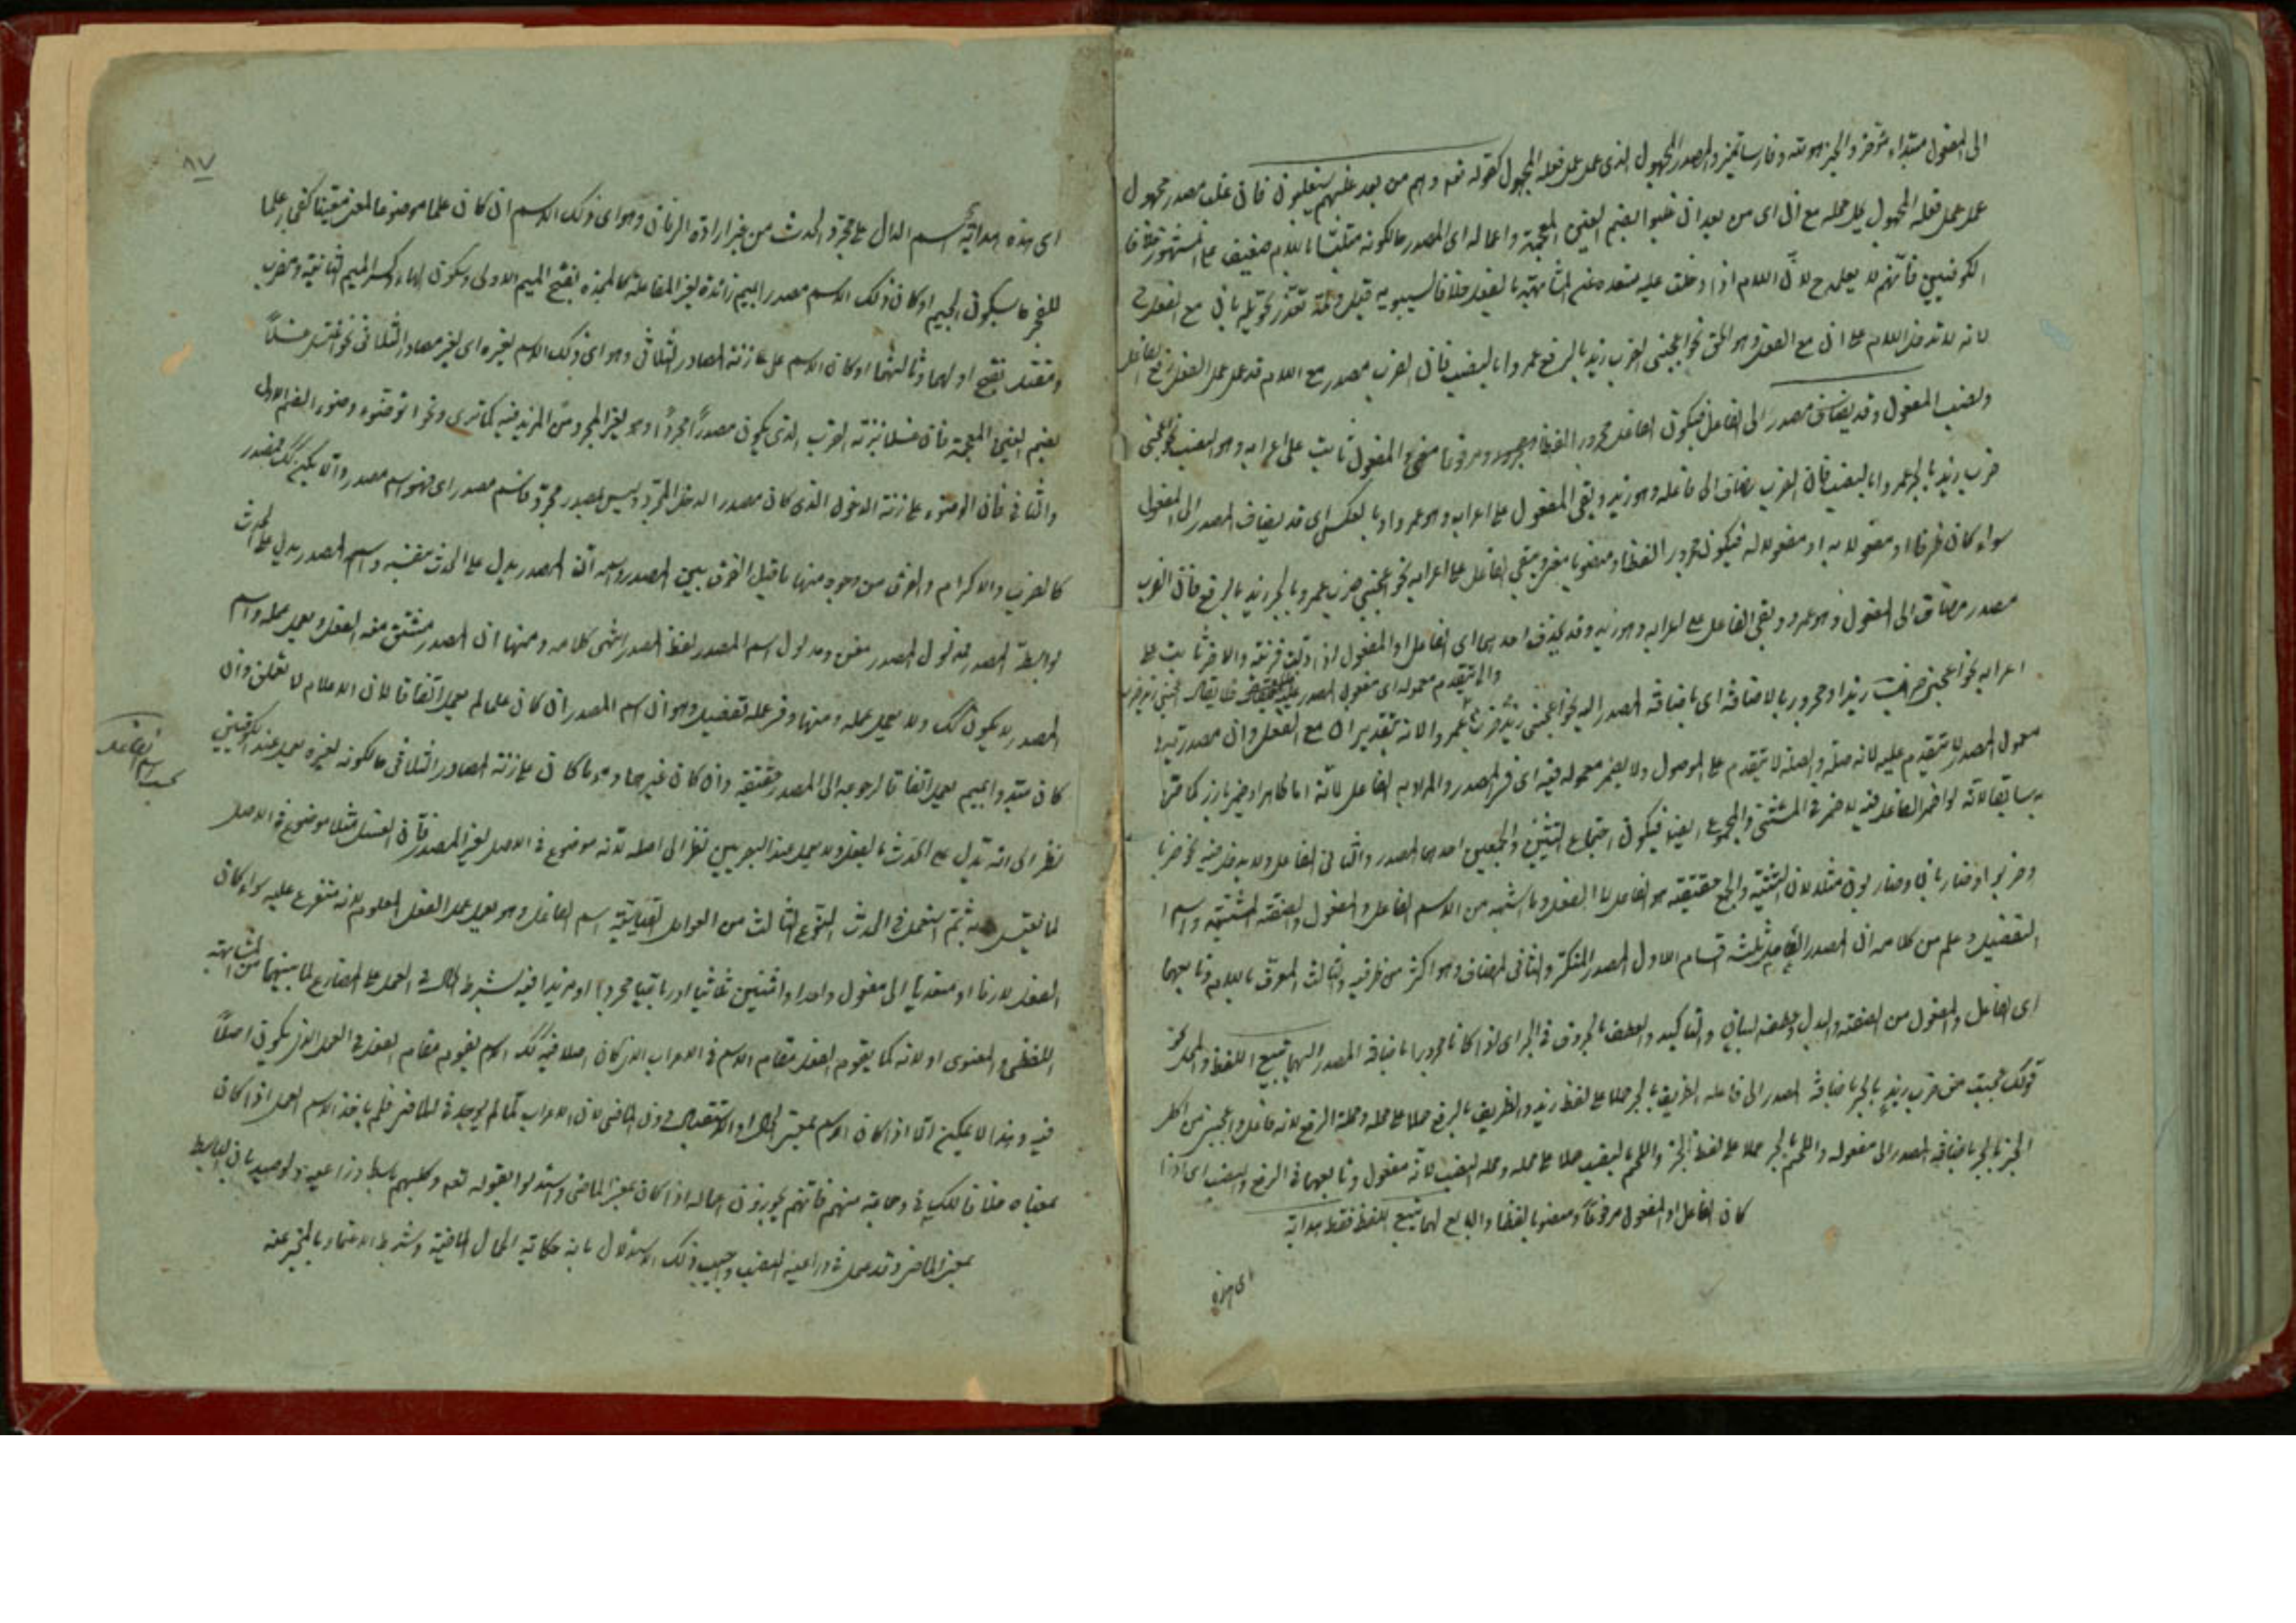 الى المفعول مبتداء مؤخر والخبر هو منه وفارسا تميز والمصدر المجهول الذى عمل عمل فعله المجهول كقوله تع وهم من بعد غلبهم سيغلبون فان غلب مصدر مجهول
عمل عمل فعله المجهول محله مع ان اى من بعد ان غلبوا بضم الغين المعجمة واعماله اى المصدر حالكونه متلبسا باللام ضعيف على المشهور خلافا
الكوفيين فانهم لا يعملون لان اللام اذا دخلت عليه بالفعل خلافا لسيبويه قيل تعذر تحويله بان مع الفعل
اللام على ان مع الفعل وهو الحق نحو اعجبنى الضرب زيد بالرفع عمروا بالنصب فان الضرب مصدر مع اللام قد عمل عمل الفعل رفع الفاعل
ونصب المفعول وقد يضاف مصدر الى الفاعل فيكون الفاعل مجرورا لفظا ومرفوعا معنى والمفعول ثابت على اعرابه وهو النصب نحو اعجبنى
ضرب زيد بالجر عمروا بالنصب فان الضرب يضاف الى فاعله وهو زيد وبقى المفعول على اعرابه وهو عمروا وبالعكس اى قد يضاف المصدر الى المفعول
سواء كان ظرفا او مفعولا به او مفعولا له فيكون مجرورا لفظا ومنصوبا معنى ويبقى الفاعل على اعرابه نحو اعجبنى ضرب عمرو بالجر زيد بالرفع فان الضرب
مصدر مضاف الى المفعول وهو عمرو وبقى الفاعل على اعرابه وهو زيد وقد يحذف احدهما اى الفاعل او المفعول اذا دلت قرينة والاخر ثابت على
ولا يتقدم معموله اى معمول المصدر عليه فلا يقال اعجبنى زيد ضرب
اعرابه نحو اعجبنى ضرب زيدا ومجرور بالاضافة اى باضافة المصدر اليه نحو اعجبنى عمروا لانه بتقدير ان مع الفعل وان مصدرية
معمول المصدر لا يتقدم عليه لانه صلة والصلة لا يتقدم على الموصول ولا يضمر معموله فيه اى فى المصدر والمراد به الفاعل لانه اما ظاهر او ضمير بارز كما مر
سابقا لانه لو اضمر الفاعل فيه لاضمر فى المثنى والمجموع ايضا فيكون اجتماع التثنيتين والجمعين احدهما المصدر والثانى الفاعل
مثله لان التثنية والجمع حقيقة هو الفاعل الفعل وما اشبهه من الاسم الفاعل والمفعول والصفة المشبهة واسم
التفضيل وعلم من كلامه ان المصدر العامل ثلثة اقسام الاول المصدر المنكر والثانى المضاف وهو اكثر من طرفيه والثالث المعرف باللام وتابعهما
اى الفاعل والمفعول من الصفة والبدل وعطف البيان والتاكيد والعطف بالحروف فى الجر اى اذا كانا مجرورا باضافة المصدر اليهما تتبع اللفظ والمحل نحو
قولك عجبت من ضرب زيد بالجر باضافة المصدر الى فاعله الظريف بالجر حملا على لفظ زيد والظريف بالرفع حملا على محله ومحله الرفع لانه فاعل واعجبنى من اكل
الخبز بالجر باضافة المصدر الى مفعوله واللحم بالجر حملا على لفظ الخبز واللحم بالنصب حملا على محله ومحله النصب لانه مفعول وتابعهما فى الرفع والنصب اى اذا
كان الفاعل او المفعول مرفوعا ومنصوبا لفظا والتابع لهما تتبع اللفظ فقط هداية
اى هذه
٨٧
اى هذه هداية اسم الدال على مجرد الحدث من غير ارادة الزمان وهو اى ذلك الاسم ان كان علما موضوعا لمعنى معينا كفجار علما
للفجر بسكون الجيم او كان ذلك الاسم مصدرا بميم زائدة لغير المفاعلة كالمحمدة بفتح الميم الاولى وسكون الهاء وكسر الميم الثانية ومضرب
ومقتل بفتح اولهما وثالثهما او كان الاسم على زنة المصادر الثلاثى وهو اى ذلك الاسم لغيره اى لغير مصادر الثلاثى نحو اغتسل غسلا
بضم الغين المعجمة فان غسلا بزنة الضرب الذى يكون مصدرا مجردا وهو لغير المجرد من المزيد فيه كما ترى ونحو توضؤه وضوء بالضم الاول
والثانى فان الوضوء على زنة الدخول الذى كان مصدر الدخل المجرد وليس بمصدر مجرد فاسم مصدر اى فهو اسم مصدر والا يكن كذلك فمصدر
كالضرب والاكرام والفرق من وجوه منها ما قيل الفرق بين المصدر واسمه ان المصدر يدل على الحدث بنفسه واسم المصدر يدل على الحدث
بواسطة المصدر فمدلول المصدر معنى ومدلول اسم المصدر لفظ المصدر انتهى كلامه ومنها ان المصدر مشتق منه الفعل ويعمل عمله واسم
المصدر لا يكون كذلك ولا يعمل عمله ومنها وفى عمله تفصيل وهو ان اسم المصدر ان كان علما لم يعمل اتفاقا لان الاعلام لا تعمل وان
كان مبتدوا بميم يعمل اتفاقا لرجوعه الى المصدر حقيقة وان كان غيرهما وهو ما كان على زنة المصادر الثلاثى حالكونه لغيره يعمل عند الكوفيين
نظر الى انه يدل على الحدث بالفعل ولا يعمل عند البصريين نظرا الى اصله لانه موضوع فى الاصل لغير المصدر فان الغسل مثلا موضوع فى الاصل
لما يغتسل به ثم استعمل فى الحدث النوع الثالث من العوامل القياسية اسم الفاعل وهو يعمل عمل الفعل المعلوم لانه متفرع عليه سواء كان
بحث اسم الفاعل
الفعل لازما او متعديا الى مفعول واحد او اثنين ثلاثيا او رباعيا مجردا او مزيدا فيه بشرط الحال فى العمل على المضارع لما بينهما من المشابهة
اللفظى والمعنوى او لانه كما يقوم الفعل مقام الاسم فى الاعراب الذى كان اصلا فيه كذلك الاسم يقوم مقام الفعل فى العمل الذى يكون اصلا
فيه وهذا لا يمكن الا اذا كان الاسم بمعنى الحال او الاستقبال دون الماضى لان الاعراب لما لم يوجد فى الماضى فلم ياخذ الاسم العمل اذا كان
بمعناه خلافا للكسائى وجماعة منهم فانهم يجوزون اعماله اذا كان بمعنى الماضى واستدلوا بقوله تع وكلبهم باسط ذراعيه بالوصيد بان الباسط
بمعنى الماضى وقد عمل فى ذراعيه النصب واجيب ذلك الاستدلال بانه حكاية الحال الماضية وشرط الاعتماد بالمخبر عنه